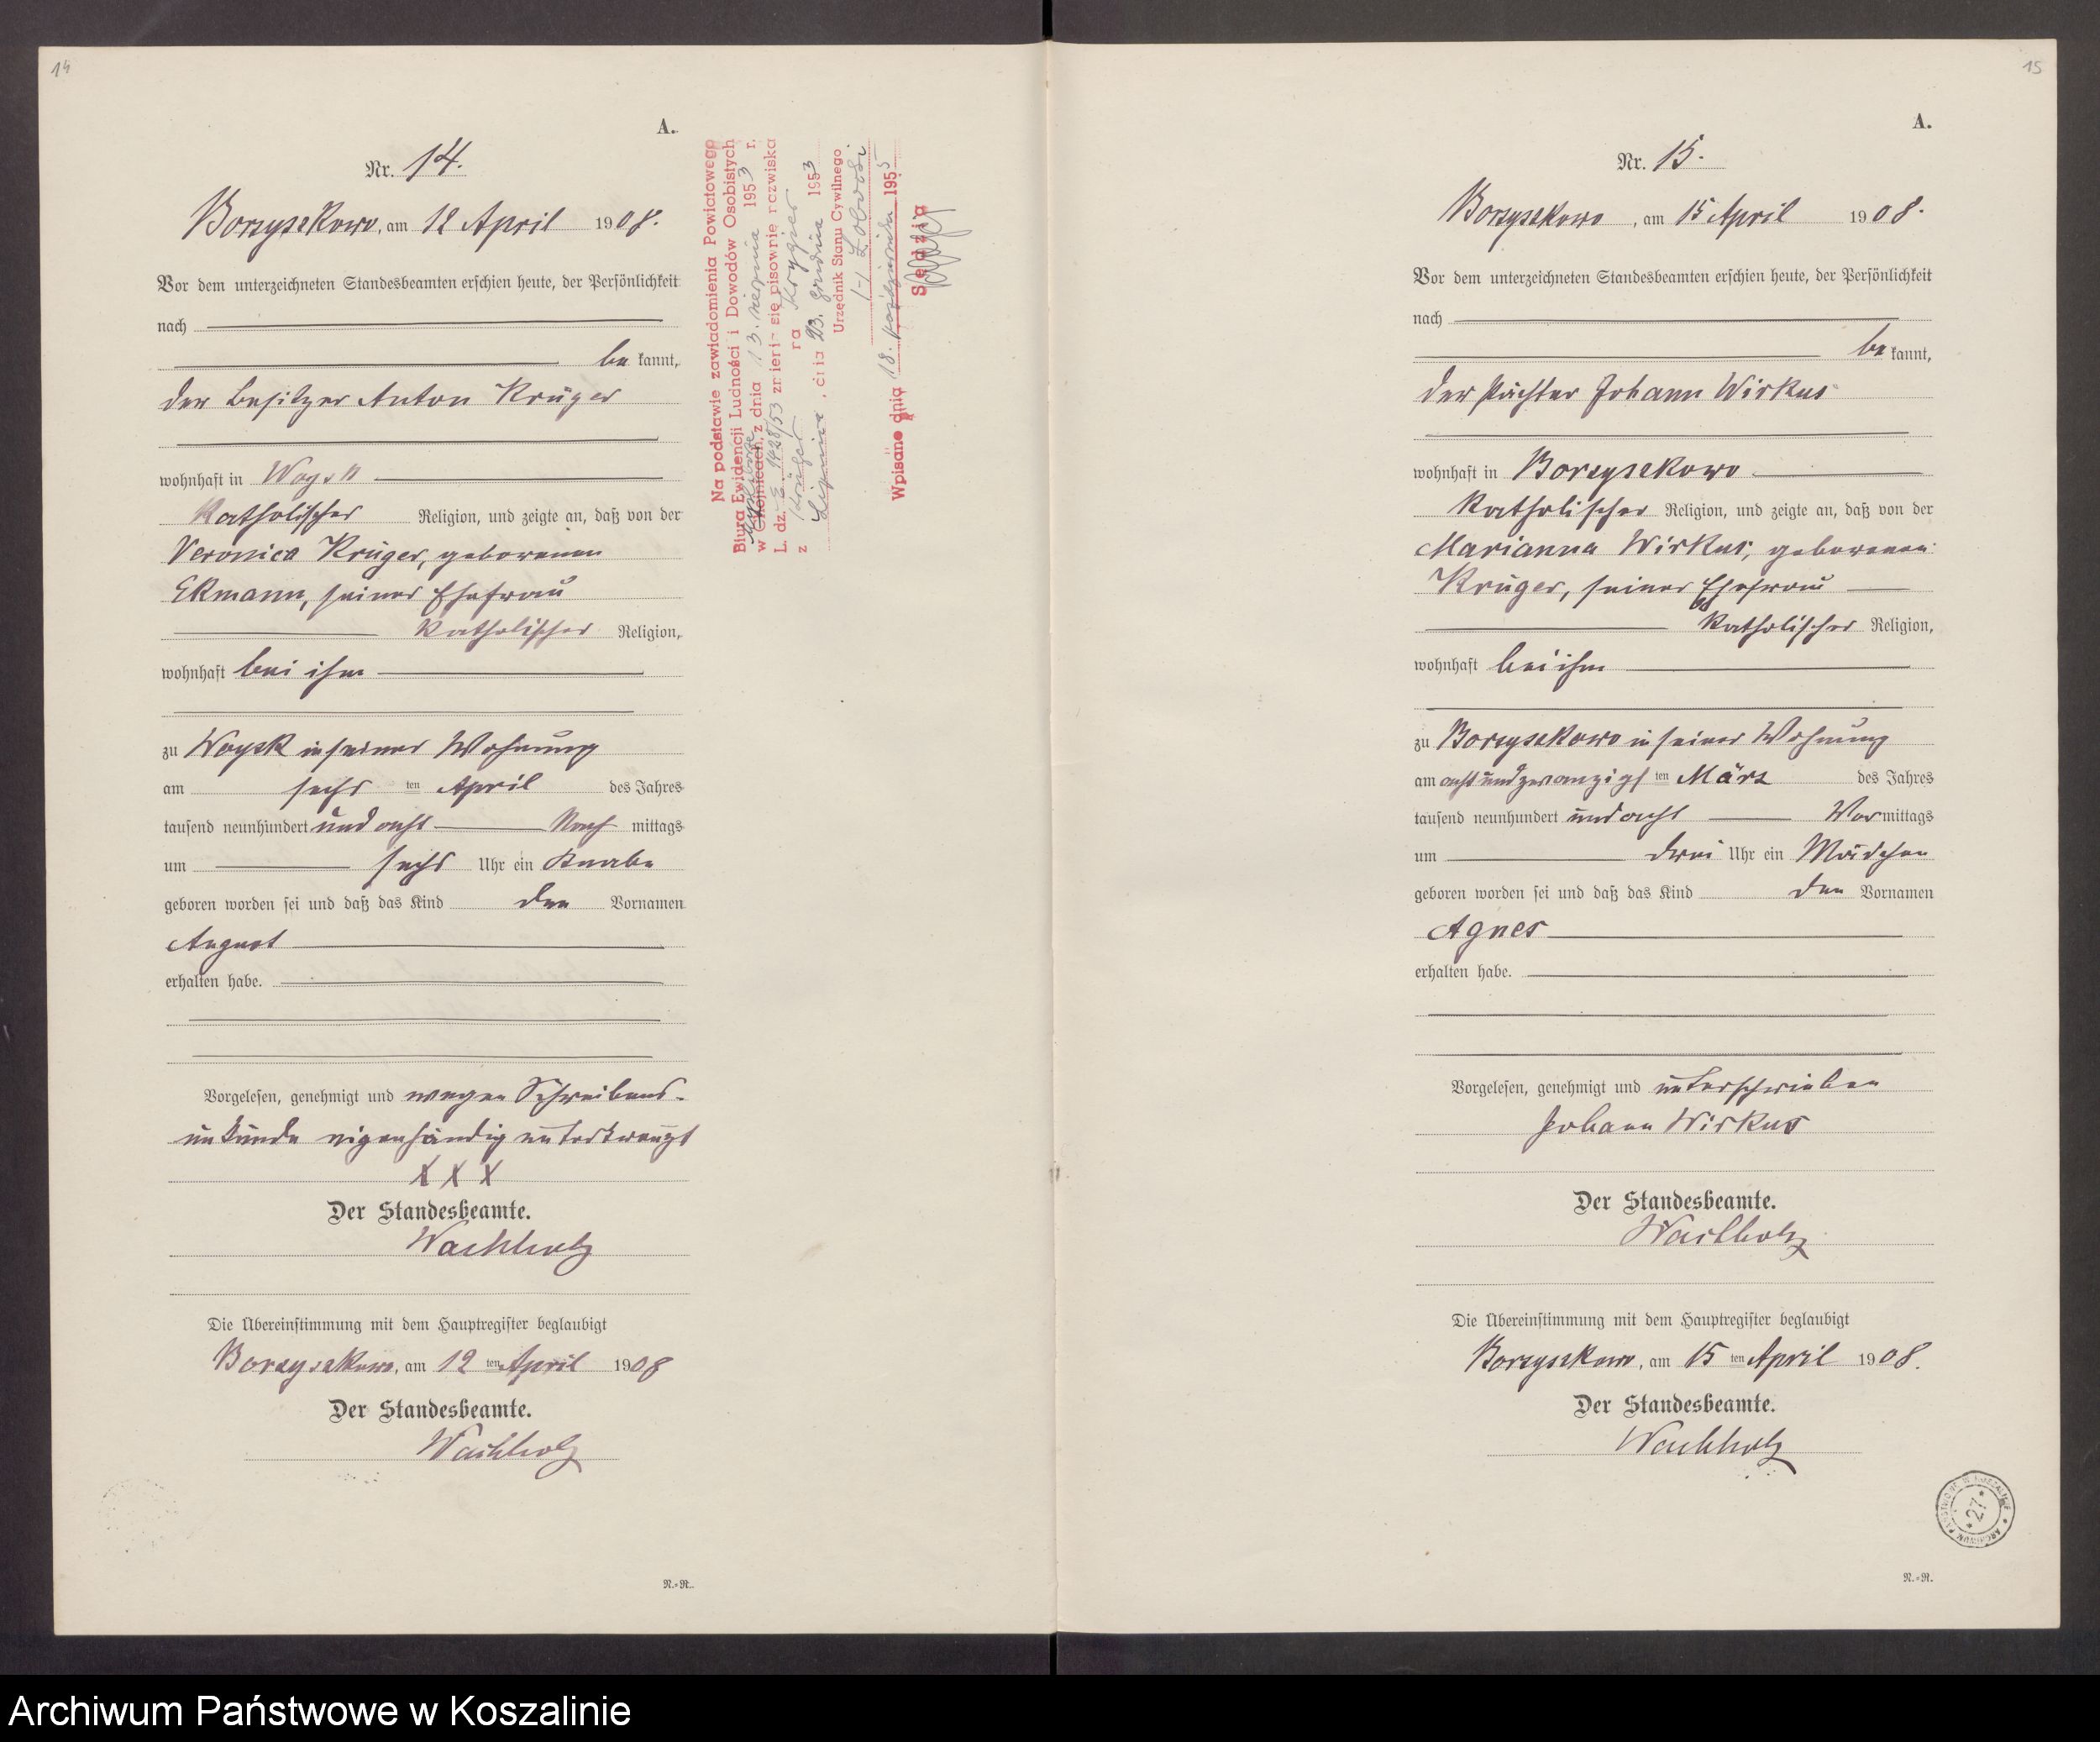 14
A.
Nr. 14.
Borzyszkowo, am 12 April 1908.
Vor dem unterzeichneten Standesbeamten erschien heute, der Persönlichkeit
nach
be kannt,
der Besitzer Anton Krüger
wohnhaft in Woysk
katholischer Religion, und zeigte an, daß von der
Veronica Krüger, geborenen
Ekmann, seiner Ehefrau
katholischer Religion,
wohnhaft bei ihm
zu Woysk in seiner Wohnung
am sechs ten April des Jahres
tausend neunhundert und acht Nach mittags
um sechs Uhr ein Knabe
geboren worden sei und daß das Kind den Vornamen
August
erhalten habe.
Vorgelesen, genehmigt und wegen Schreibens-
unkunde eigenhändig unterkreuzt
X X X
Der Standesbeamte.
Wachholz
Die Übereinstimmung mit dem Hauptregister beglaubigt
Borzyszkowo, am 12 ten April 1908
Der Standesbeamte.
Wachholz
N.=R.
Na podstawie zawiadomienia Powiatowego
Biura Ewidencji Ludności i Dowodów Osobistych
w Chojnicach, z dnia 13. sierpnia 1953 r.
L. dz. 1428/53 zmieni- się pisownię nazwiska
z Krüger na Krygier
Lipnica, dnia 23. grudnia 1953
Urzędnik Stanu Cywilnego
Wpisane dnia 18. października 1955
Sędzia
15
A.
Nr. 15.
Borzyszkowo, am 15 April 1908.
Vor dem unterzeichneten Standesbeamten erschien heute, der Persönlichkeit
nach
be kannt,
der Pächter Johann Wirkus
wohnhaft in Borzyszkowo
katholischer Religion, und zeigte an, daß von der
Marianna Wirkus, geborenen
Krüger, seiner Ehefrau
katholischer Religion,
wohnhaft bei ihm
zu Borzyszkowo in seiner Wohnung
am acht und zwanzigs ten März des Jahres
tausend neunhundert und acht Vor mittags
um drei Uhr ein Mädchen
geboren worden sei und daß das Kind den Vornamen
Agnes
erhalten habe.
Vorgelesen, genehmigt und unterschrieben
Johann Wirkus
Der Standesbeamte.
Wachholz
Die Übereinstimmung mit dem Hauptregister beglaubigt
Borzyszkowo, am 15 ten April 1908.
Der Standesbeamte.
Wachholz
ARCHIWUM PAŃSTWOWE W KOSZALINIE
* 27 *
N.=R.
Archiwum Państwowe w Koszalinie